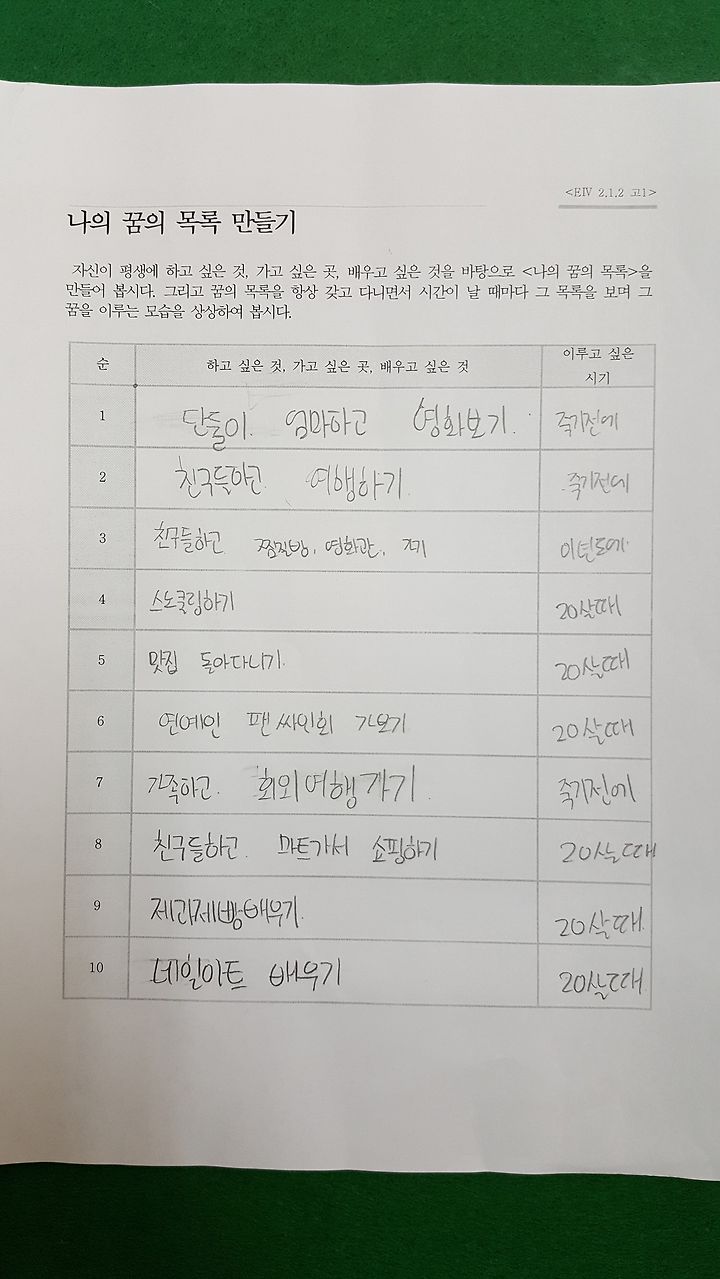 <EIV 2.1.2 고1>
나의 꿈의 목록 만들기
자신이 평생에 하고 싶은 것, 가고 싶은 곳, 배우고 싶은 것을 바탕으로 <나의 꿈의 목록>을
만들어 봅시다. 그리고 꿈의 목록을 항상 갖고 다니면서 시간이 날 때마다 그 목록을 보며 그
꿈을 이루는 모습을 상상하여 봅시다.
순 하고 싶은 것, 가고 싶은 곳, 배우고 싶은 것 이루고 싶은
시기
1 단둘이 엄마하고 영화보기. 죽기전에
2 친구들하고 여행하기 죽기전에
3 친구들하고 찜질방, 영화관, 가기 이년도에
4 스노쿨링하기 20살때
5 맛집 돌아다니기 20살때
6 연예인 팬싸인회 가보기 20살때
7 가족하고 회외여행가기 죽기전에
8 친구들하고 마트가서 쇼핑하기 20살때
9 제과제빵배우기 20살때
10 네일아트 배우기 20살때